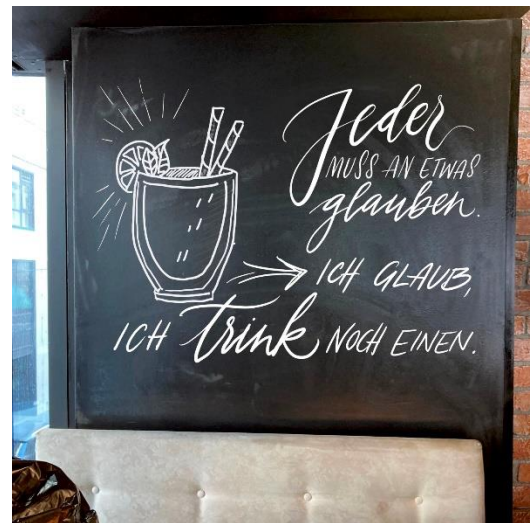 Jeder
MUSS AN ETWAS
glauben.
ICH GLAUB,
ICH trink NOCH EINEN.